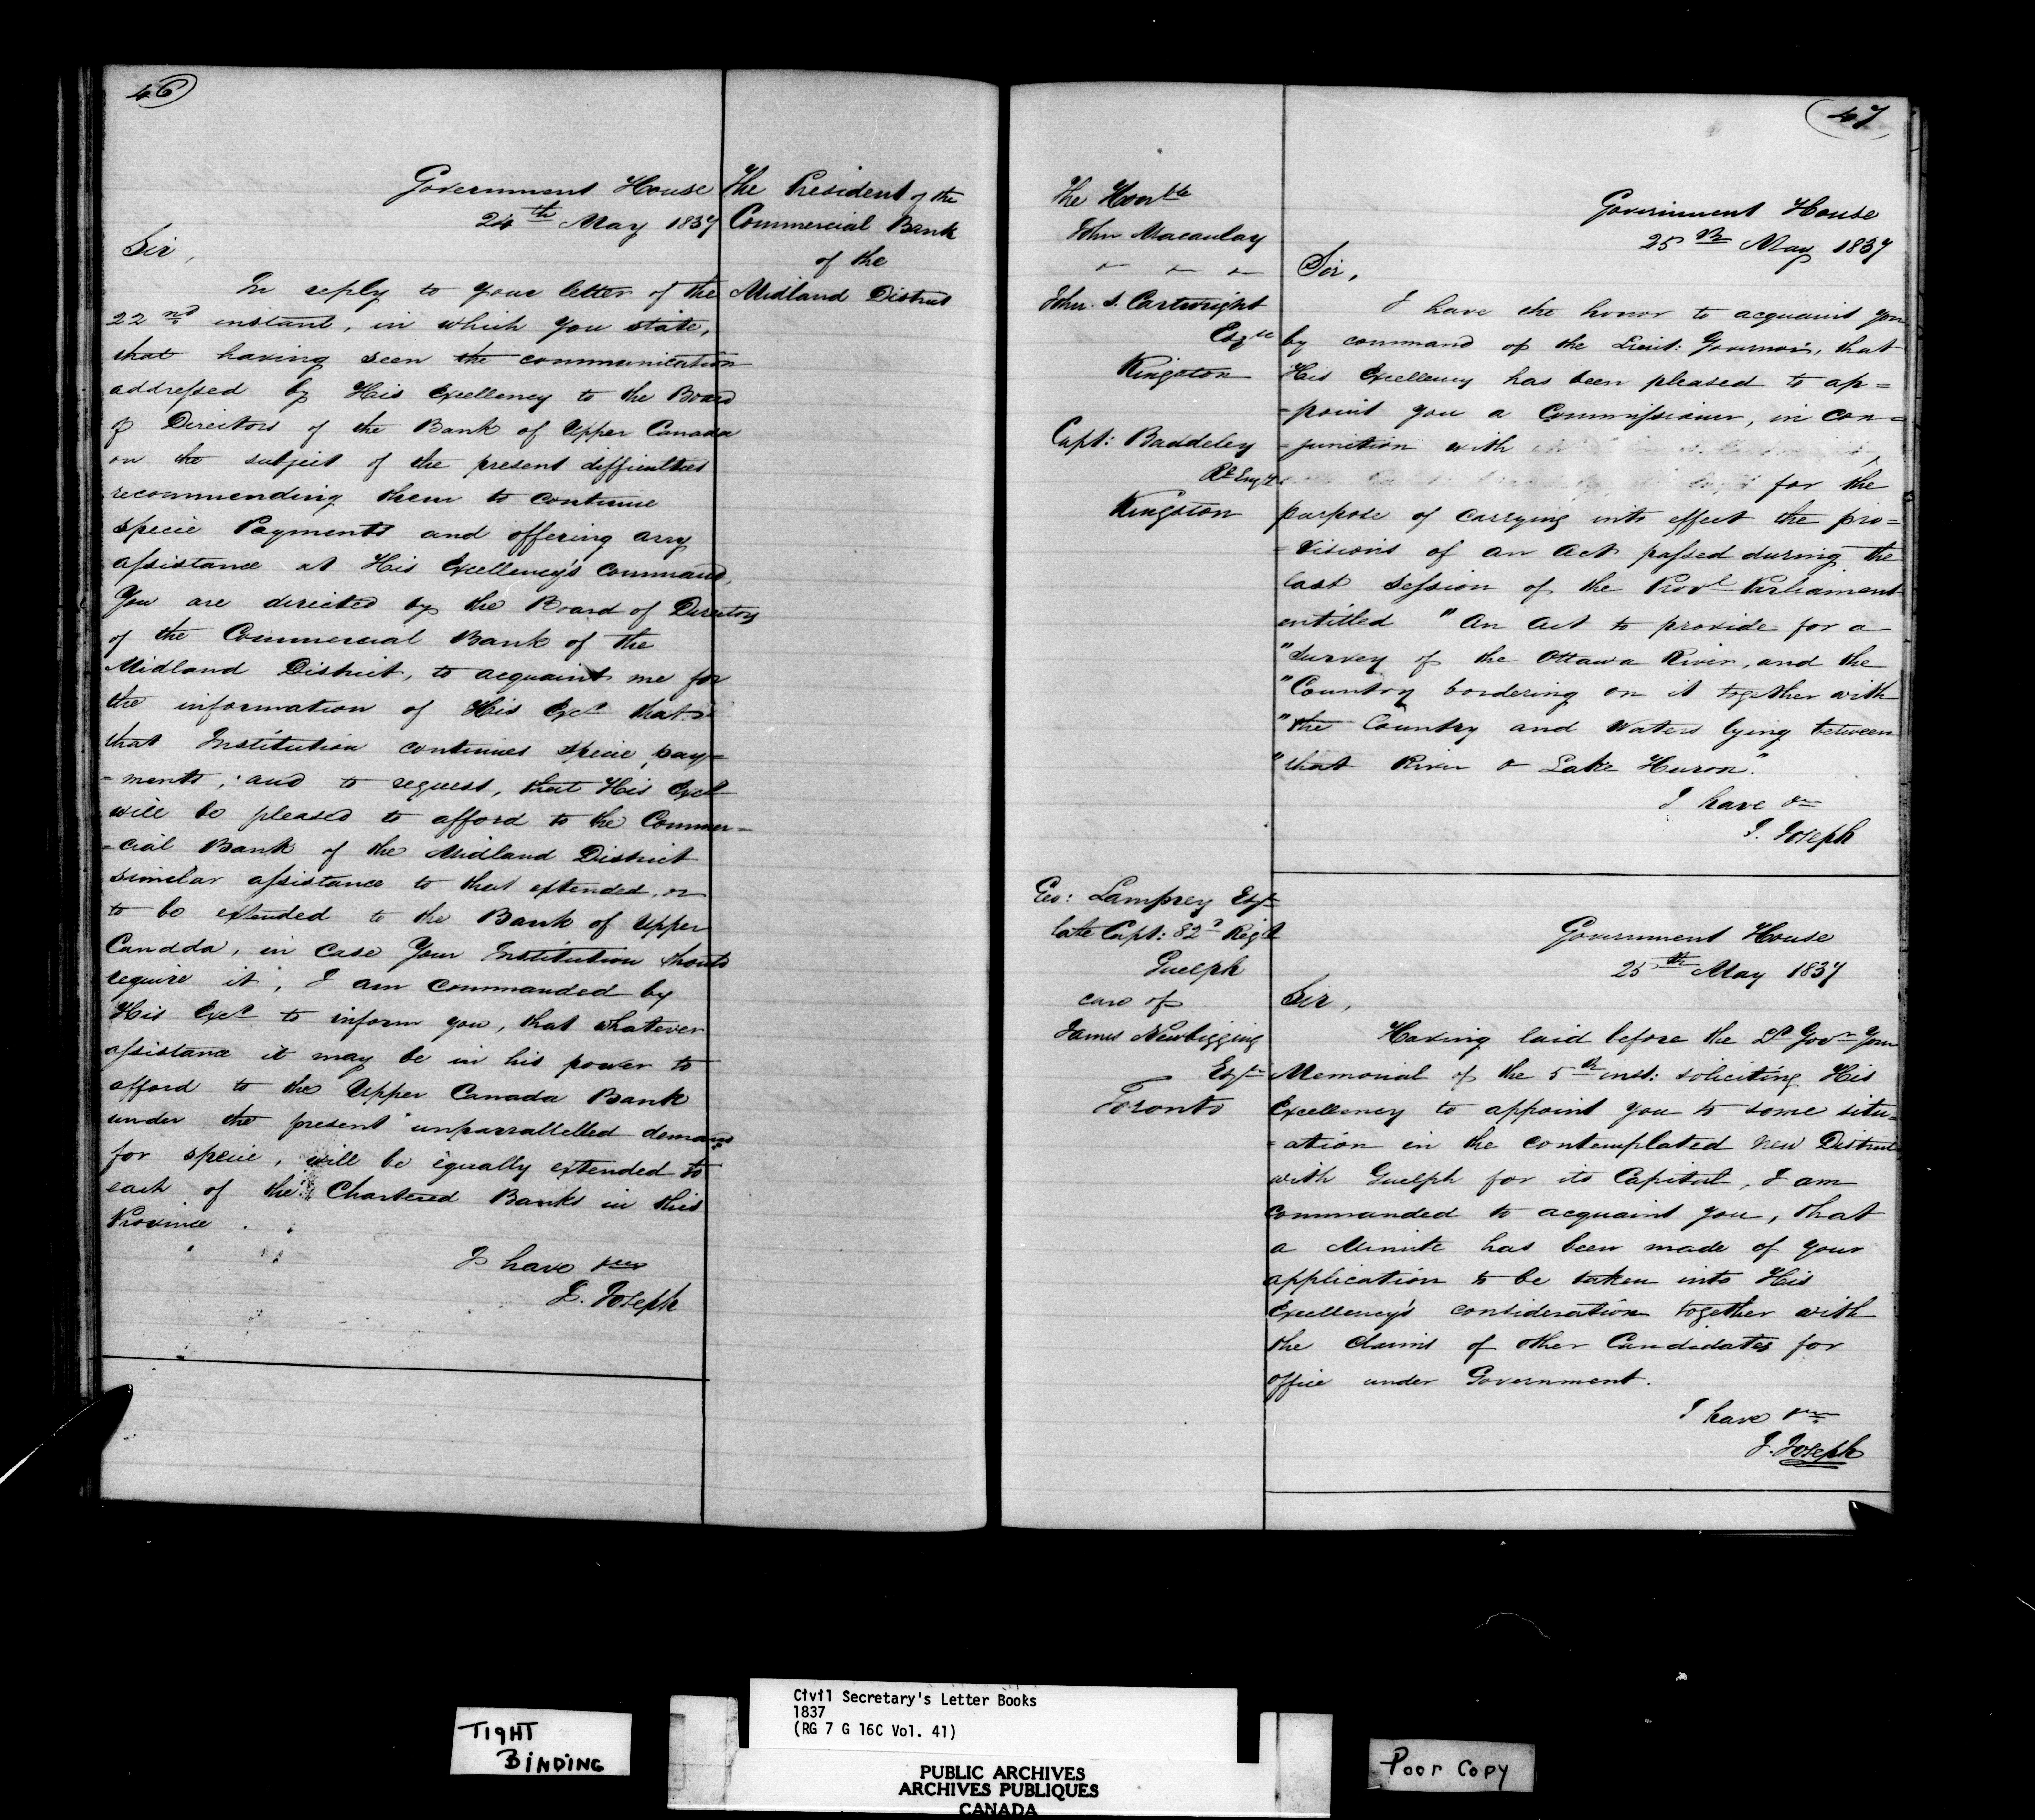 46
Government House
24th May 1837
The President of the
Commercial Bank
of the
Midland District
Sir,
In reply to your letter of the
22nd instant, in which you state,
that having seen the communication
addressed by His Excellency to the Board
of Directors of the Bank of Upper Canada
on the subject of the present difficulties
recommending them to continue
specie Payments and offering any
assistance at His Excellency's command,
You are directed by the Board of Directors
of the Commercial Bank of the
Midland District, to acquaint me for
the information of His Excy that
that Institution continues specie pay=
=ments; and to request, that His Excy
will be pleased to afford to the Commer=
=cial Bank of the Midland District
similar assistance to that extended, or
to be extended to the Bank of Upper
Canada, in case Your Institution should
require it; I am commanded by
His Excy to inform you, that whatever
assistance it may be in his power to
afford to the Upper Canada Bank
under the present unparrallelled demand
for specie, will be equally extended to
each of the Chartered Banks in this
Province.
I have &c
J. Joseph
47
The Honble
John Macaulay
John. S. Cartwright
Esqre
Kingston
Capt: Baddeley
Rl Engrs
Kingston
Government House
25th May 1837
Sir,
I have the honor to acquaint you
by command of the Lieut: Governor, that
His Excellency has been pleased to ap=
=point you a Commissioner, in con=
=junction with
for the
purpose of carrying into effect the pro=
=visions of an Act passed during the
last Session of the Provl Parliament
entitled "An Act to provide for a
"Survey of the Ottawa River, and the
"Country bordering on it together with
"the Country and Waters lying between
"that River & Lake Huron."
I have &c
J. Joseph
Geo: Lamprey Esqr
late Capt: 82d Regt
Guelph
care of
James Newbigging
Esqr
Toronto
Government House
25th May 1837
Sir,
Having laid before the Lt Govr Your
Memorial of the 5th inst: soliciting His
Excellency to appoint you to some situ=
=ation in the contemplated new District
with Guelph for its Capital, I am
commanded to acquaint you, that
a Minute has been made of your
application to be taken into His
Excellency's consideration together with
the claims of other Candidates for
office under Government.
I have &c
J. Joseph
TIGHT
BINDING
Civil Secretary's Letter Books
1837
(RG 7 G 16C Vol. 41)
PUBLIC ARCHIVES
ARCHIVES PUBLIQUES
CANADA
Poor Copy